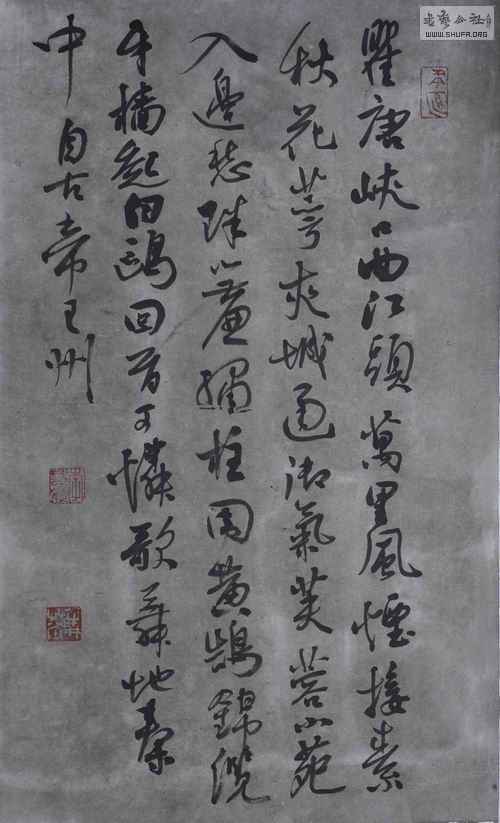 瞿唐峽口曲江頭萬里風煙接素
秋花萼夾城通御氣芙蓉小苑
入邊愁珠簾繡柱圍黃鵠錦纜
牙檣起白鷗回首可憐歌舞地秦
中自古帝王州
書藝公社
WWW.SHUFA.ORG